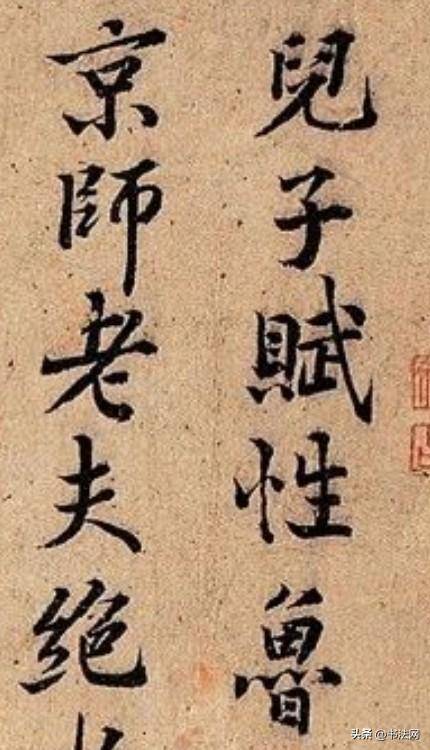 兒子賦性魯
京師老夫絶
头条 @书法网